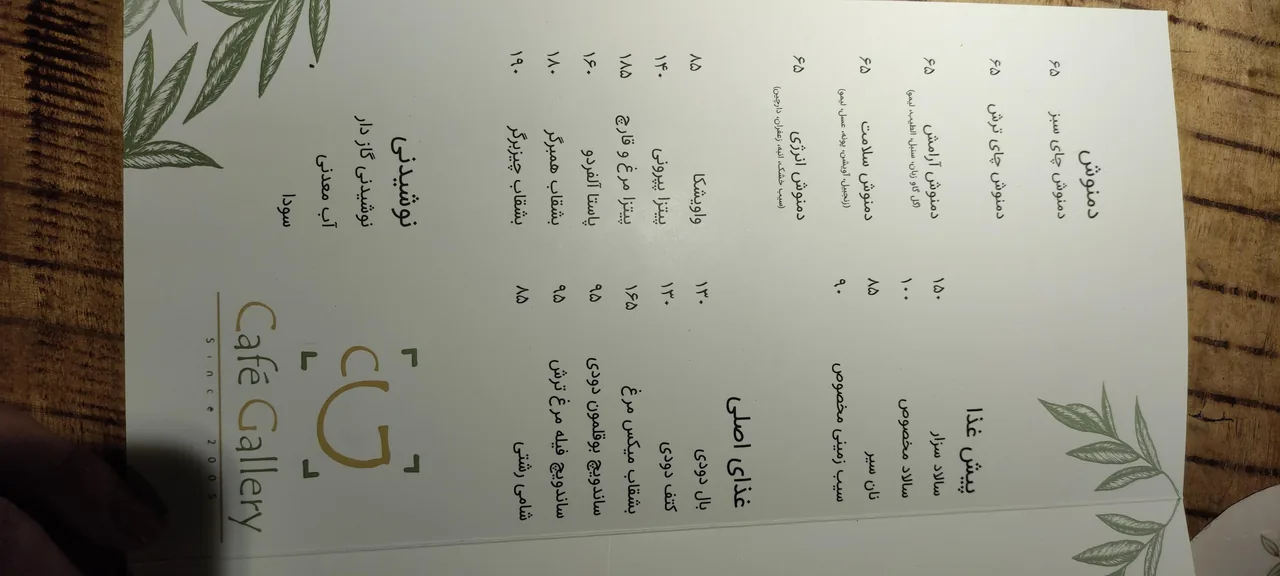 پیش غذا
سالاد سزار ۱۵۰
سالاد مخصوص ۱۰۰
نان سیر ۸۵
سیب زمینی مخصوص ۹۰
غذای اصلی
بال دودی ۱۳۰
کتف دودی ۱۳۰
بشقاب میکس مرغ ۱۶۵
ساندویچ بوقلمون دودی ۹۵
ساندویچ فیله مرغ ترش ۹۵
شامی رشتی ۸۵
دمنوش
دمنوش چای سبز ۶۵
دمنوش چای ترش ۶۵
دمنوش آرامش ۶۵
(گل گاو زبان، سنبل الطیب، لیمو)
دمنوش سلامت ۶۵
(زنجبیل، آویشن، پونه، عسل، لیمو)
دمنوش انرژی ۶۵
(سیب خشک، به، زعفران، دارچین)
واویشکا ۸۵
پیتزا پپرونی ۱۴۰
پیتزا مرغ و قارچ ۱۸۵
پاستا آلفردو ۱۶۰
بشقاب همبرگر ۱۸۰
بشقاب چیزبرگر ۱۹۰
نوشیدنی
نوشیدنی گاز دار
آب معدنی
سودا
Café Gallery
Since 2005